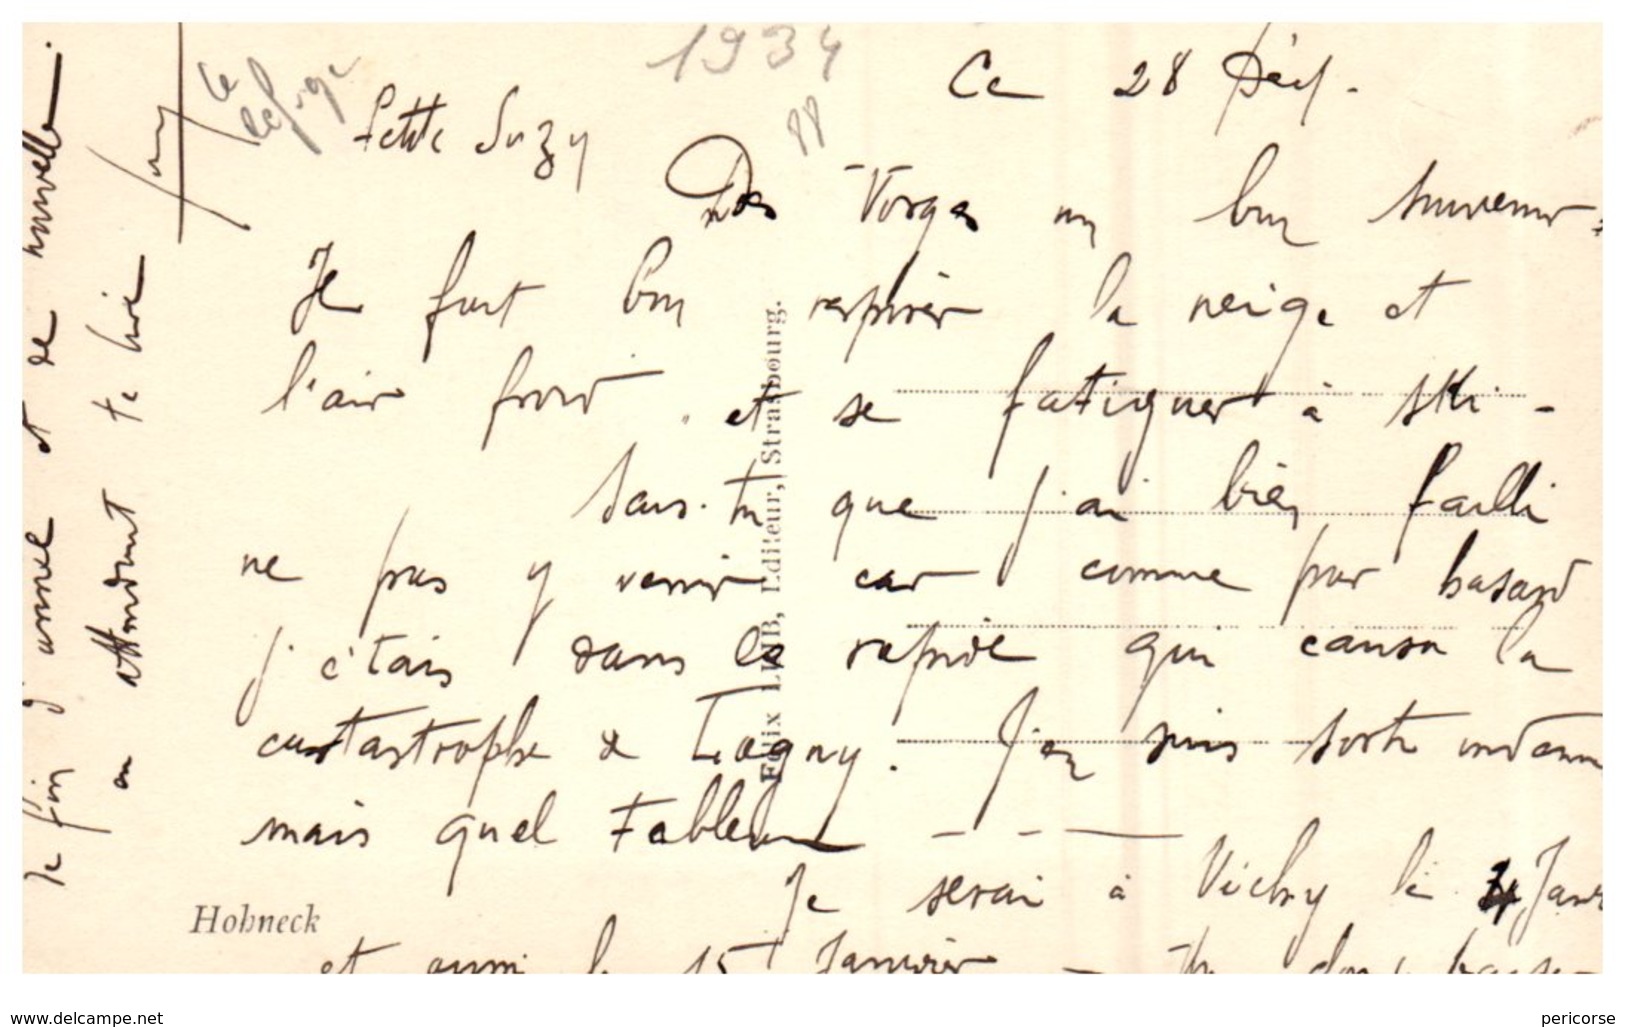 1934
Ce 28 Déc.
Petite Suzy
Des Vosges un bon souvenir
Il fait bon respirer la neige et
l'air froid, et se fatiguer à ski -
Sais-tu que j'ai bien failli
ne pas y venir car comme par hasard
j'étais dans le rapide qui causa la
catastrophe de Lagny. J'en suis sorti indemn
mais quel tableau - - —
Je serai à Vichy le 4 Janv
et aussi le 15 Janvier -
de fin d'année et de nouvelle.
en attendant te lire
Hohneck
Félix LUIB, Editeur, Strasbourg.
www.delcampe.net
pericorse